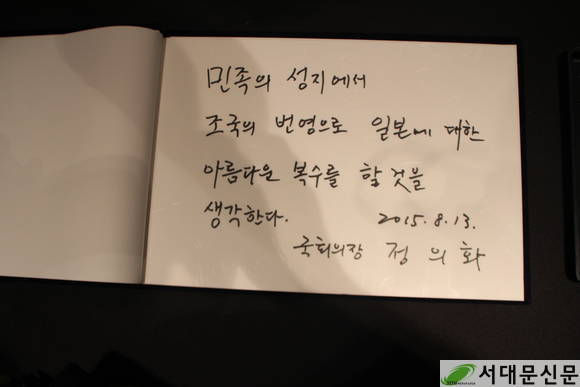 민족의 성지에서
조국의 번영으로 일본에 대한
아름다운 복수를 할 것을
생각한다. 2015.8.13.
국회의장 정의화
서대문신문